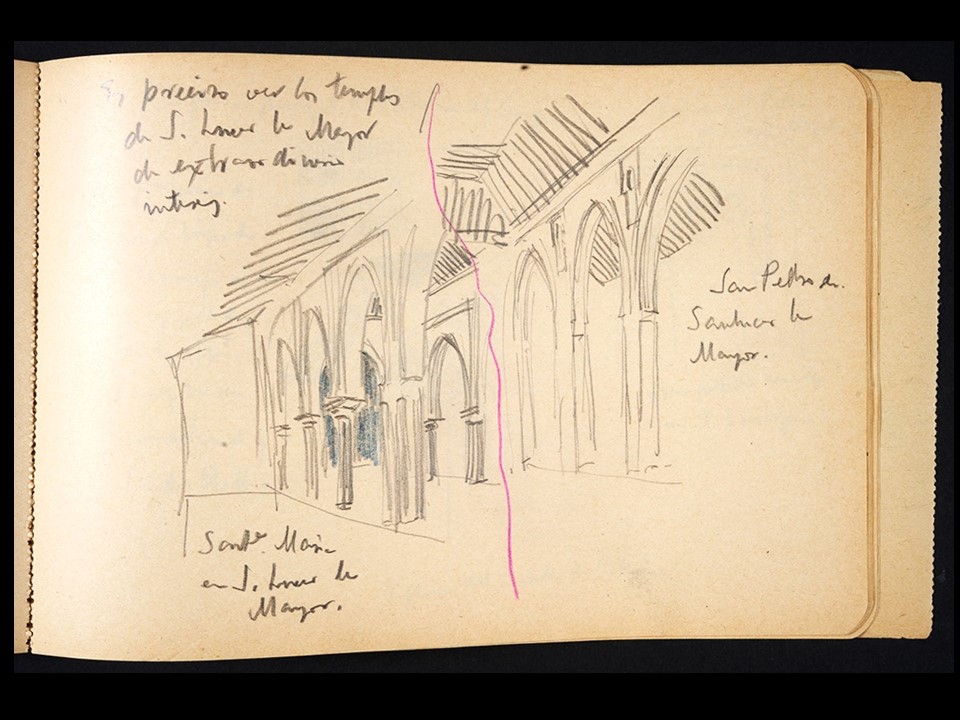 Es preciso ver los templos
de S. Lucar la Mayor
de extraordinario
interés.
San Pedro en
Sanlucar la
Mayor.
Santa Maria
en S. Lucar la
Mayor.